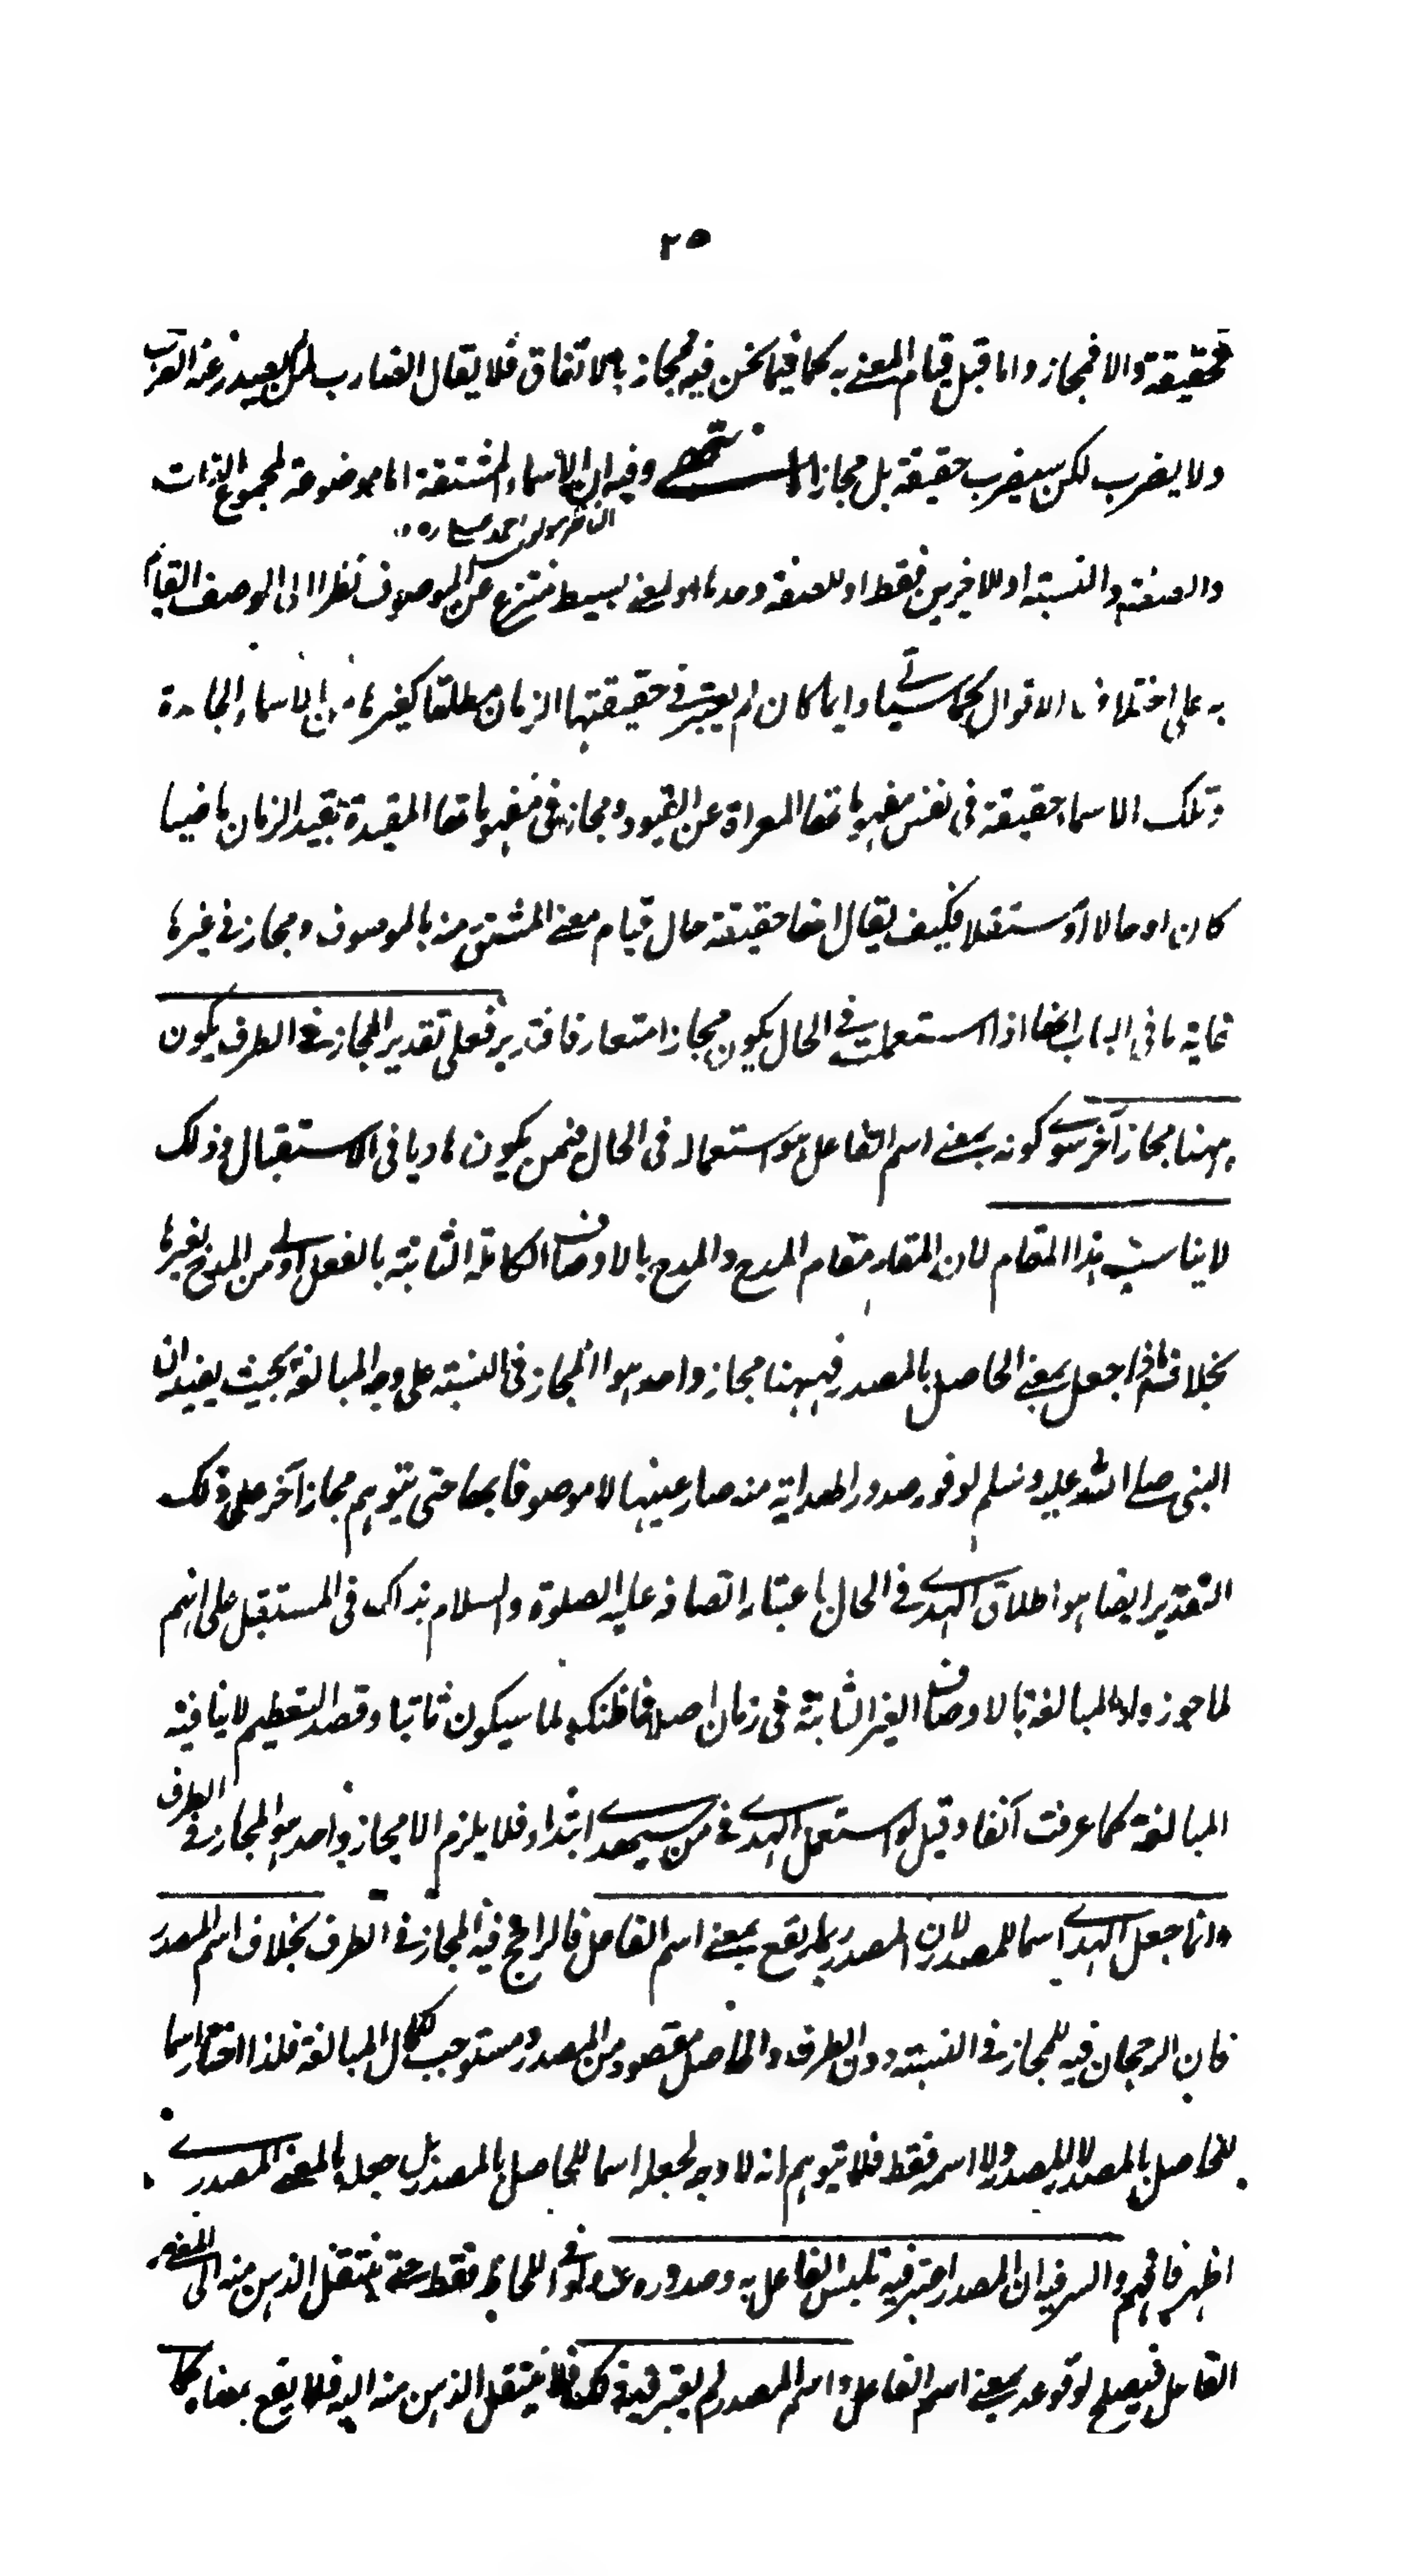 ٢٥
فحقيقة والا فمجاز واما قبل قيام المعنى به كما فيما نحن فيه فمجاز بالاتفاق فلا يقال الضارب لمن لم يصدر عنه الضرب
ولا يضرب لكن سيضرب حقيقة بل مجازا انتهى وفيه ان الاسماء المشتقة اما موضوعة لمجموع الذات
والصفة والنسبة او للاخيرين فقط او للصفة وحدها او لمعنى بسيط منتزع عن الموصوف نظرا الى الوصف القائم
به على اختلاف الاقوال كما سياتى وايا ما كان لم يعتبر فى حقيقتها الزمان مطلقا كغيرها من الاسماء الجامدة
وتلك الاسماء حقيقة فى نفس مفهوماتها المعراة عن القيود ومجاز فى مفهوماتها المقيدة بقيد الزمان ماضيا
كان او حالا او مستقبلا فكيف يقال انها حقيقة حال قيام معنى المشتق منه بالموصوف ومجاز فى غيرها
غاية ما فى الباب انها اذا استعملت فى الحال يكون مجازا متعارفا فتدبر فعلى تقدير المجاز فى الطرف يكون
ههنا مجاز آخر سوى كونه بمعنى اسم الفاعل هو استعماله فى الحال فيمن يكون هاديا فى الاستقبال وذلك
لا يناسب هذا المقام لان المقام مقام المدح والمدح بالاوصاف الكاملة الثابتة بالفعل اولى من المدح بغيرها
بخلاف ما اذا جعل بمعنى الحاصل بالمصدر فههنا مجاز واحد هو المجاز فى النسبة على وجه المبالغة بحيث يفيد ان
النبى صلى الله عليه وسلم لوفور صدور الهداية منه صار عينها لا موصوفا بها حتى يتوهم مجاز آخر على ذلك
التقدير ايضا هو اطلاق الهدى فى الحال باعتبار اتصافه عليه الصلوة والسلام بذاك فى المستقبل على انهم
لما جوزوا المبالغة بالاوصاف الغير الثابتة فى زمان اصلا فما ظنك لما سيكون ثابتا وقصد التعظيم لا ينافيه
المبالغة كما عرفت آنفا وقيل لو استعمل الهدى فى من سيهدى ابتداء فلا يلزم الا مجاز واحد هو المجاز فى الطرف
وانما جعل الهدى اسما للمصدر لان المصدر ربما يقع بمعنى اسم الفاعل فالراجح فيه المجاز فى الطرف بخلاف اسم المصدر
فان الرجحان فيه للمجاز فى النسبة دون الطرف والحاصل مقصود من المصدر ومستوجب لكمال المبالغة فلذا اختار اسما
للحاصل بالمصدر لا للمصدر ولا اسمه فقط فلا يتوهم انه لا وجه لجعله اسما للحاصل بالمصدر بل جعله بالمعنى المصدرى
اظهر فافهم والسر فيه ان المصدر اعتبر فيه تلبس الفاعل به وصدوره عنه ولو فى اللحاظ فقط حتى ينتقل الذهن منه الى المعنى
الفاعل فيصلح لوقوعه بمعنى اسم الفاعل واسم المصدر لم يعتبر فيه ذلك فلا ينتقل الذهن منه اليه فلا يقع بمعناه كما